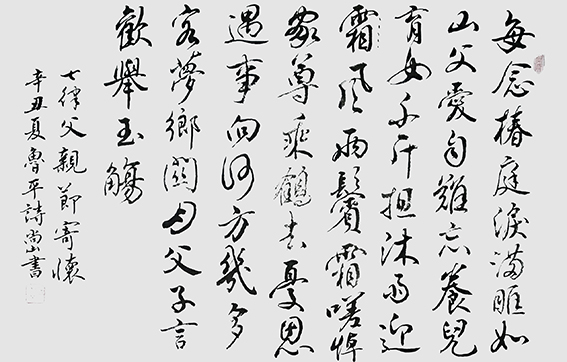 每念椿庭淚滿眶如
山父愛自難忘養兒
育女千斤担沐雨迎
霜風兩鬢霜嗟悼
家尊乘鶴去憂思
遇事向何方幾多
客夢鄉關回父子言
歡舉玉觴
七律父親節寄懷
辛丑夏魯平詩尚山書